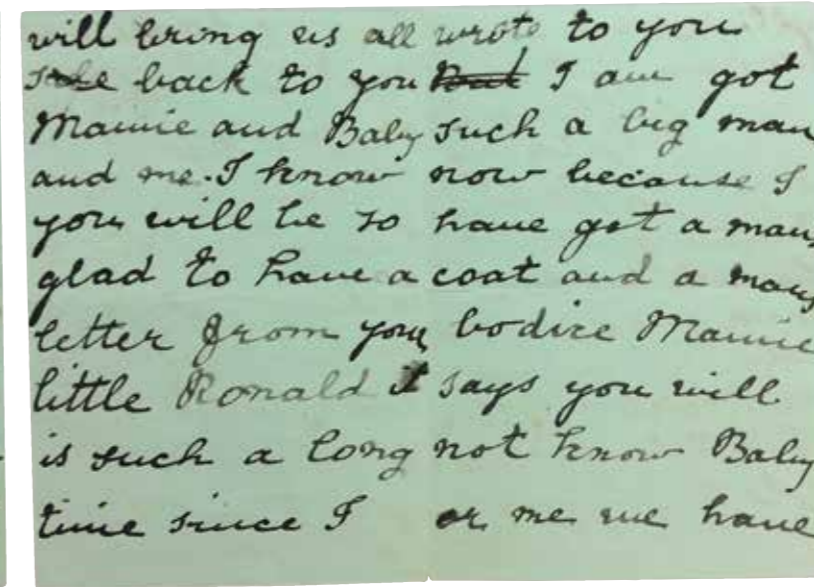 will bring us all
safe back to you
Mamie and Baby
and me. I know
you will be so
glad to have a
letter from your
little Ronald it
is such a long
time since I
wrote to you
But I am got
such a big man
now because I
have got a mans
coat and a mans
bodice Mamie
says you will
not know Baby
or me we have